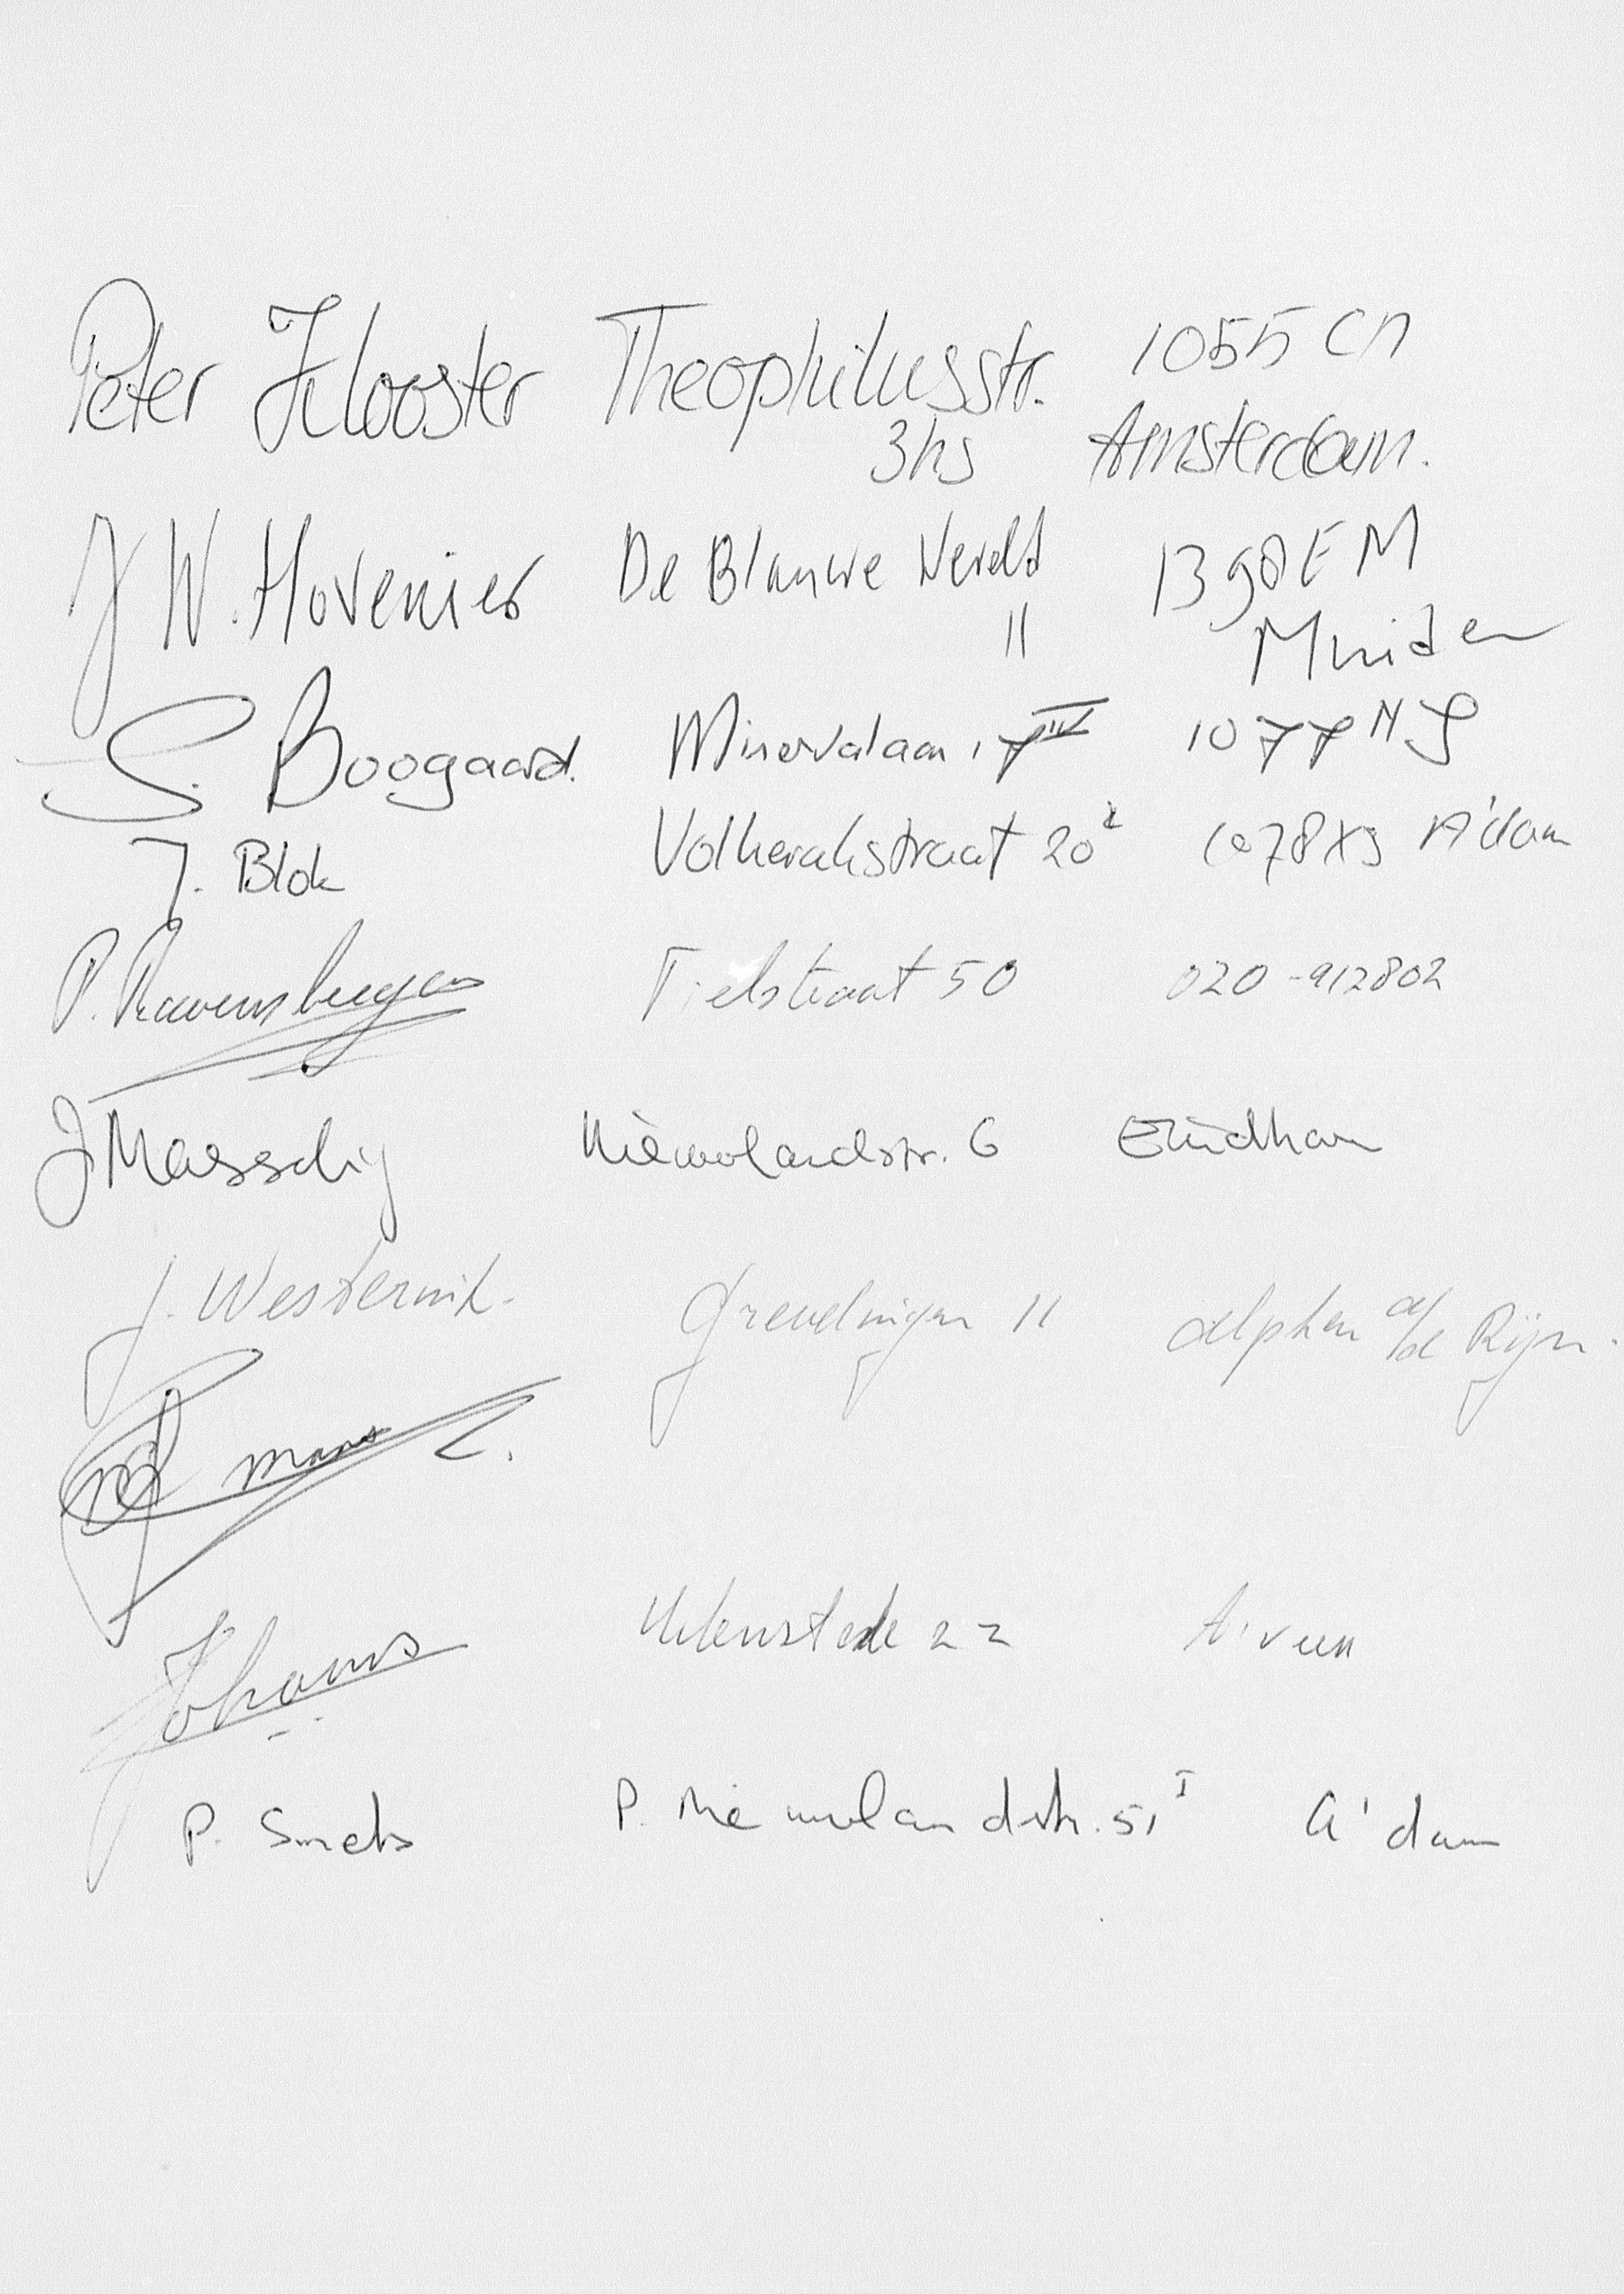 Peter Klooster Theophilusstr. 1055 CN
3hs Amsterdam.
J W. Hovenier De Blauwe Wereld 1398 EM
11 Muiden
S. Boogaard. Minervalaan 17 III 1077 NJ
J. Blok Volkerakstraat 20 1078 XS A'dam
P. Ravensbergen Tielstraat 50 020-912802
J 6 Eindhoven
J. Westerink. Grevelingen 11 Alphen a/d Rijn.
mans L.
Uilenstede 22 A'veen
P. Smets P. Nieuwlandstr. 51 I A'dam